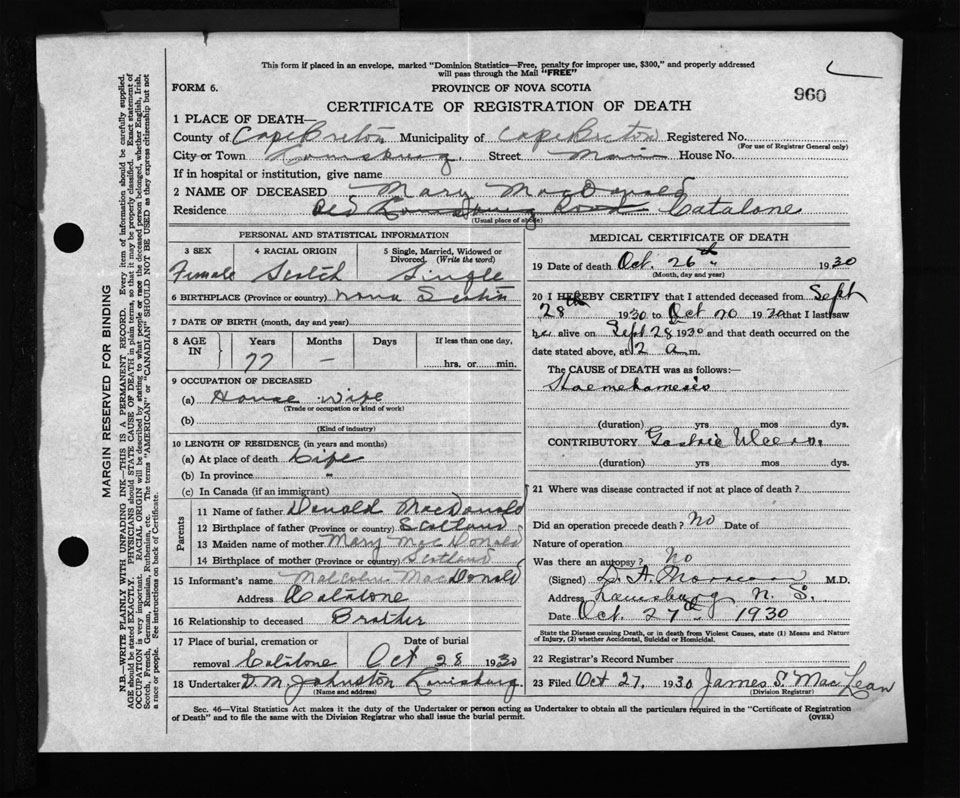 This form if placed in an envelope, marked "Dominion Statistics—Free, penalty for improper use, $300," and properly addressed
will pass through the Mail "FREE"
FORM 6. PROVINCE OF NOVA SCOTIA 960
CERTIFICATE OF REGISTRATION OF DEATH
1 PLACE OF DEATH—
County of Cape Breton Municipality of Cape Breton Registered No.
(For use of Registrar General only)
City or Town Louisburg Street Main House No.
If in hospital or institution, give name
2 NAME OF DECEASED Mary MacDonald
Residence Old Louisburg Road Catalone
(Usual place of abode)
PERSONAL AND STATISTICAL INFORMATION
3 SEX 4 RACIAL ORIGIN 5 Single, Married, Widowed or
Divorced. (Write the word)
Female Scotch Single
6 BIRTHPLACE (Province or country) Nova Scotia
7 DATE OF BIRTH (month, day and year)
8 AGE IN Years Months Days If less than one day,
77 — hrs. or min.
9 OCCUPATION OF DECEASED
(a) House Wife
(Trade or occupation or kind of work)
(b)
(Kind of industry)
10 LENGTH OF RESIDENCE (in years and months)
(a) At place of death Life
(b) In province "
(c) In Canada (if an immigrant)
Parents
11 Name of father Donald MacDonald
12 Birthplace of father (Province or country) Scotland
13 Maiden name of mother Mary MacDonald
14 Birthplace of mother (Province or country) Scotland
15 Informant's name Malcolm MacDonald
Address Catalone
16 Relationship to deceased Brother
17 Place of burial, cremation or Date of burial
removal Catalone Oct 28 1930
18 Undertaker D.M. Johnston Louisburg
(Name and address)
MEDICAL CERTIFICATE OF DEATH
19 Date of death Oct. 26th " 1930
(Month, day and year)
20 I HEREBY CERTIFY that I attended deceased from Sept
28th 1930 to Oct 20 1930 that I last saw
her alive on Sept 28 1930 and that death occurred on the
date stated above, at 2 a m.
The CAUSE of DEATH was as follows:—
Haemetamesis
(duration) yrs mos dys.
CONTRIBUTORY Gastric Ulcer
(duration) yrs mos dys.
21 Where was disease contracted if not at place of death?
Did an operation precede death? No Date of
Nature of operation
Was there an autopsy? No
(Signed) M.D.
Address Louisburg N. S.
Date Oct. 27th " 1930
State the Disease causing Death, or in death from Violent Causes, state (1) Means and Nature
of Injury, (2) whether Accidental, Suicidal or Homicidal.
22 Registrar's Record Number
23 Filed Oct 27, 1930 James S. MacLean
(Division Registrar)
Sec. 46—Vital Statistics Act makes it the duty of the Undertaker or person acting as Undertaker to obtain all the particulars required in the "Certificate of Registration
of Death" and to file the same with the Division Registrar who shall issue the burial permit. (OVER)
MARGIN RESERVED FOR BINDING
N.B.—WRITE PLAINLY WITH UNFADING INK—THIS IS A PERMANENT RECORD. Every item of information should be carefully supplied.
AGE should be stated EXACTLY. PHYSICIANS should STATE CAUSE OF DEATH in plain terms, so that it may be properly classified. Exact statement of
OCCUPATION is very important. RACIAL ORIGIN will be described by stating to what people or race the deceased person belonged, whether English, Irish,
Scotch, French, German, Russian, Ruthenian, etc. The terms "AMERICAN" or "CANADIAN" SHOULD NOT BE USED as they express citizenship but not
a race or people. See instructions on back of Certificate.